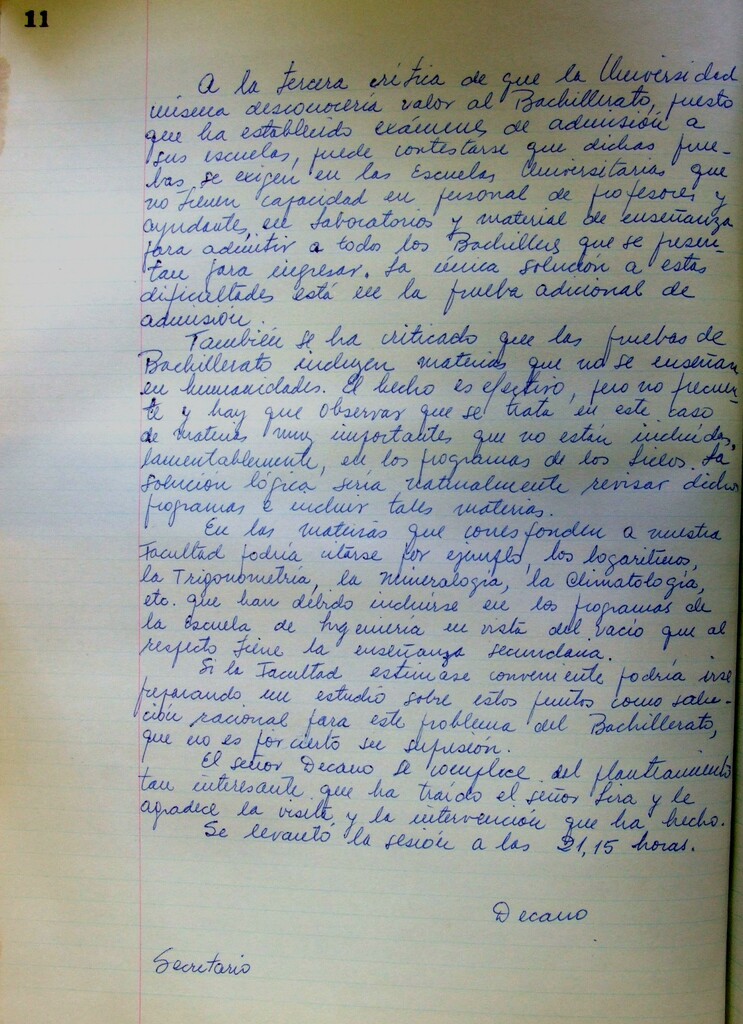 11
A la tercera crítica de que la Universidad
misma desconocería valor al Bachillerato, puesto
que ha establecido exámenes de admisión a
sus escuelas, puede contestarse que dichas prue-
bas se exigen en las Escuelas Universitarias que
no tienen capacidad en personal de profesores y
ayudantes, en laboratorios y material de enseñanza
para admitir a todos los Bachilleres que se presen-
tan para ingresar. La única solución a estas
dificultades está en la prueba adicional de
admisión.
También se ha criticado que las pruebas de
Bachillerato incluyen materias que no se enseñan
en humanidades. El hecho es efectivo, pero no frecuen-
te y hay que observar que se trata en este caso
de materias muy importantes que no están incluídas,
lamentablemente, en los programas de los Liceos. La
solución lógica sería naturalmente revisar dichos
programas e incluir tales materias.
En las materias que corresponden a nuestra
Facultad podría citarse por ejemplo, los logaritmos,
la Trigonometría, la Mineralogía, la Climatología,
etc. que han debido incluirse en los programas de
la Escuela de Ingeniería en vista del vacío que al
respecto tiene la enseñanza secundaria.
Si la Facultad estimase conveniente podría irse
preparando un estudio sobre estos puntos como solu-
ción racional para este problema del Bachillerato,
que no es por cierto su supresión.
El señor Decano se complace del planteamiento
tan interesante que ha traído el señor Lira y le
agradece la visita y la intervención que ha hecho.
Se levantó la sesión a las 21,15 horas.
Decano
Secretario